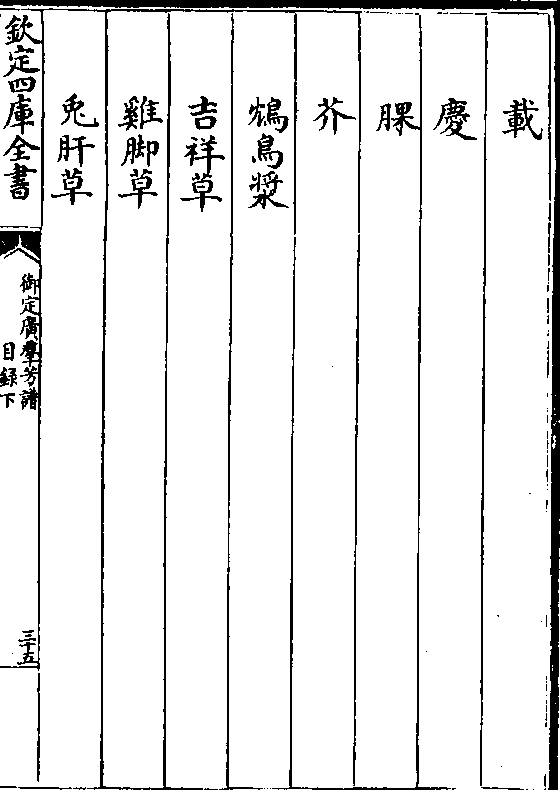 載
慶
䐗
芥
鴆鳥漿
吉祥草
雞脚草
兎肝草
欽定四庫全書
御定廣羣芳譜
目録下
三十五